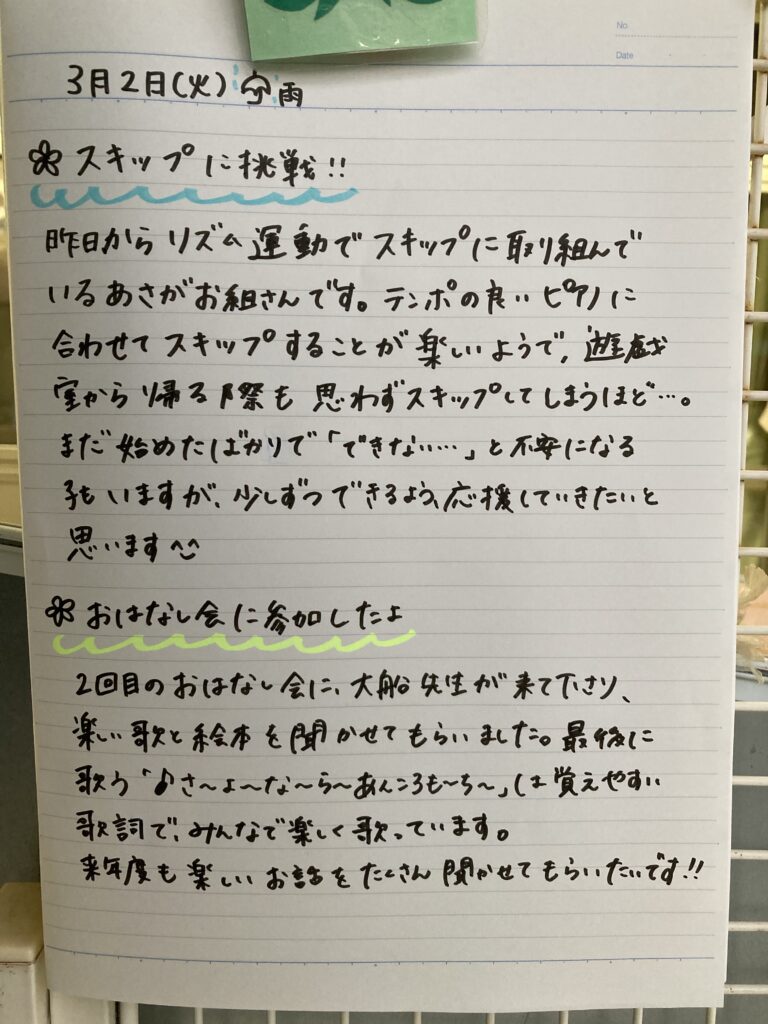 No.
Date
3月2日(火) 雨
スキップに挑戦!!
昨日からリズム運動でスキップに取り組んで
いるあさがお組さんです。テンポの良いピアノに
合わせてスキップすることが楽しいようで、遊戯
室から帰る際も思わずスキップしてしまうほど…。
まだ始めたばかりで「できない…」と不安になる
子もいますが、少しずつできるよう、応援していきたいと
思います^^
おはなし会に参加したよ
2回目のおはなし会に、大船先生が来て下さり、
楽しい歌と絵本を聞かせてもらいました。最後に
歌う「♪さ〜よ〜な〜ら〜あんころも〜ち〜」は覚えやすい
歌詞で、みんなで楽しく歌っています。
来年度も楽しいお話をたくさん聞かせてもらいたいです!!